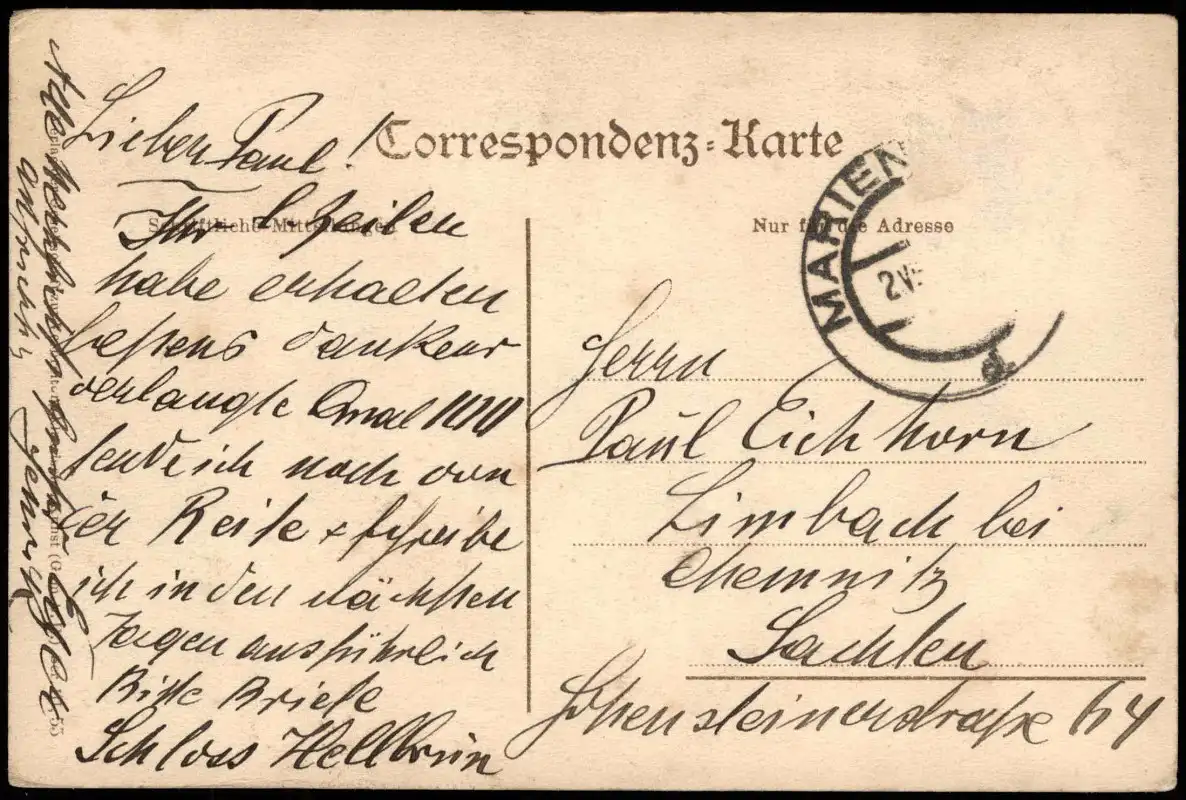 Correspondenz-Karte
Schriftliche Mitteilungen
Nur für die Adresse
MARIEN
2
Lieber Paul!
Ihr l. Zeilen
habe erhalten
bestens dankend
verlangte
sende ich noch von
der Reise + schreibe
ich in den nächsten
Tagen ausführlich
Bitte Briefe
Schloss Hellbrun
Herrn
Paul Eichhorn
Limbach bei
Chemnitz
Sachsen
Hohensteinerstraße 64